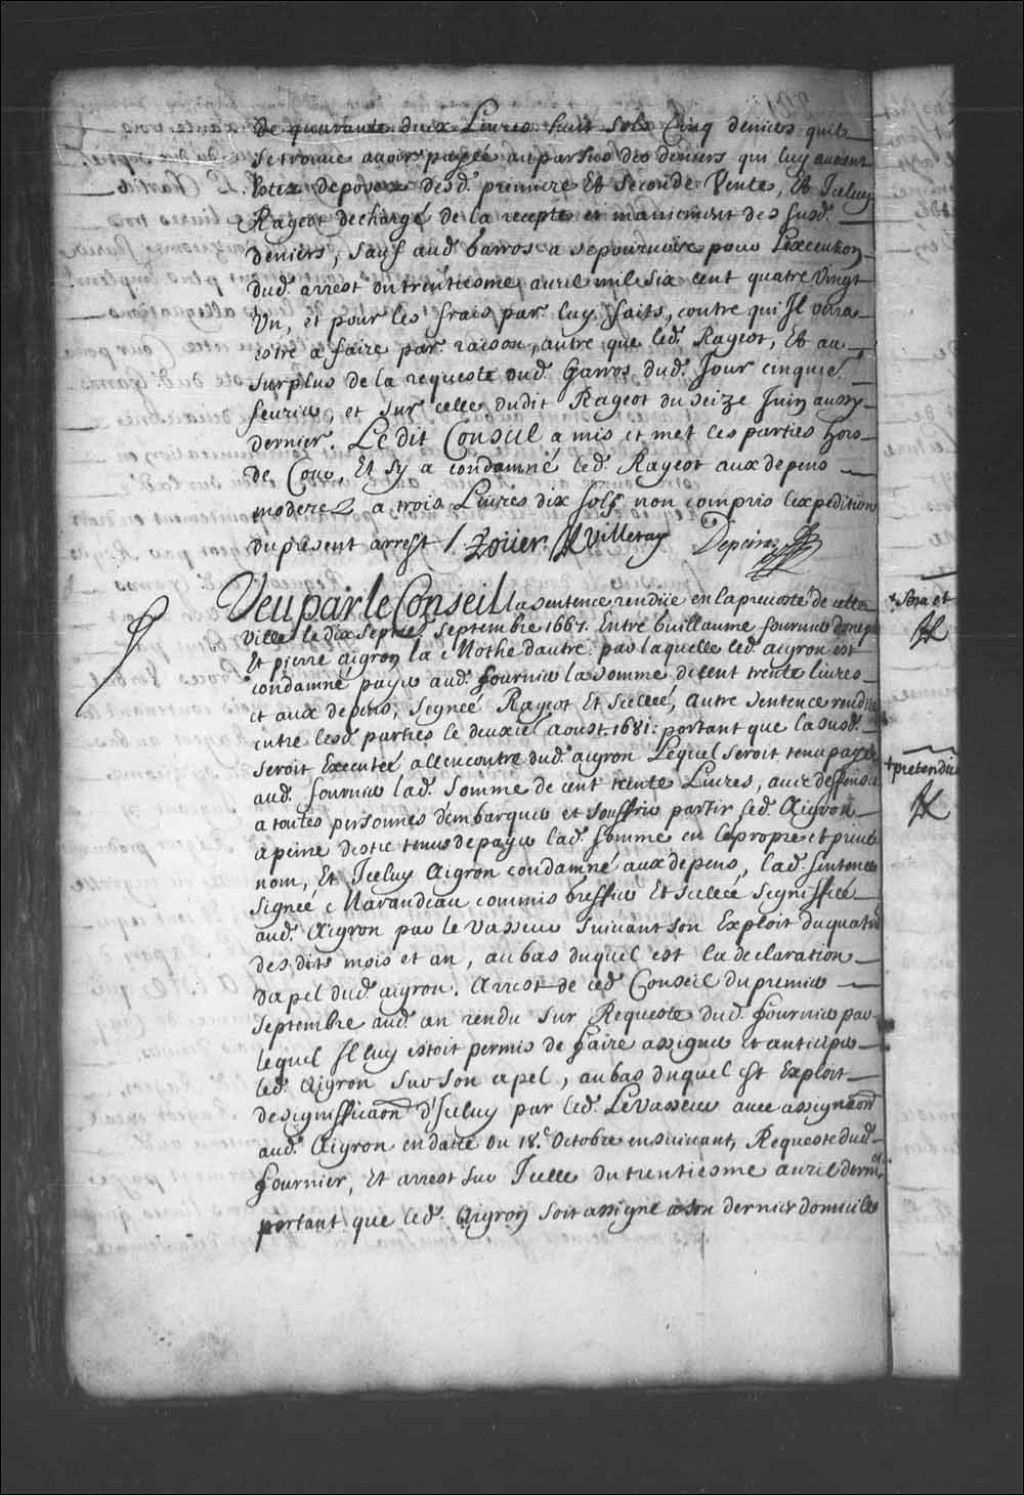 de quarante deux Livres huit sols Cinq deniers quil
se trouve avoir payée au par sus des deniers qui luy avoient
estez deposez desd. premiere Et seconde Vente, Et Iceluy
Rageot dechargé de la recepte et maniement des susd.
deniers, sauf aud. Garros a se pourvoire pour Lexecution
dud. arrest du trentiesme avril mil six cent quatre Vingt
Un, et pour les frais par luy faits, contre qui Il verra
estre a faire par raison, autre que led. Rageot, Et au
surplus de la requeste dud. Garros dud. Jour cinquie.
fevrier, et sur celle dudit Rageot du seize Juin aussy
dernier. Le dit Conseil a mis et met les parties hors
de Cour, Et sy a condamné led. Rageot aux depens
moderez a trois Livres dix sols non compris lexpedition
du present arrest /. Rouer. Villeray Depeiras
Veu par le Conseil la sentence rendüe en la prevosté de cette
Ville le dix septie. septembre 1667. Entre Guillaume fournier
Et pierre aigron la Mothe dautre. par laquelle led. aigron est
condamné payer aud. fournier la somme de cent trente livres
et aux depens, signée Rageot Et scellée, autre sentence rendüe
entre lesd. parties le deuxie. aoust 1681. portant que la susd.
seroit Executée allencontre dud. aigron Lequel seroit tenu payer
aud. fournier lad. somme de cent trente Livres, avec deffenses
a toutes personnes dembarquer et souffrir partir led. Aigron
a peine destre tenus de payer lad. somme en leur propre et privé
nom, Et Iceluy Aigron condamné aux depens, lad. sentence
signée Marandeau commis greffier Et scellée signiffiée
aud. Aigron par le Vasseur suivant son Exploit du quatre
des dits mois et an, au bas duquel est la declaration
dapel dud. aigron. Arrest de ced. Conseil du premier
septembre aud. an rendu sur Requeste dud. fournier par
lequel Il luy estoit permis de faire assigner et anticiper
led. Aigron sur son apel, au bas duquel est Exploit
de signifficaon d'Iceluy par led. LeVasseur avec assignaon
aud. Aigron en datte du 18.e Octobre ensuivant, Requeste dud.
fournier, Et arrest sur Icelle du trentiesme avril dernr.
portant que led. Aigron soit assigné a son dernier domicile
+ Sera et
+ pretendüe